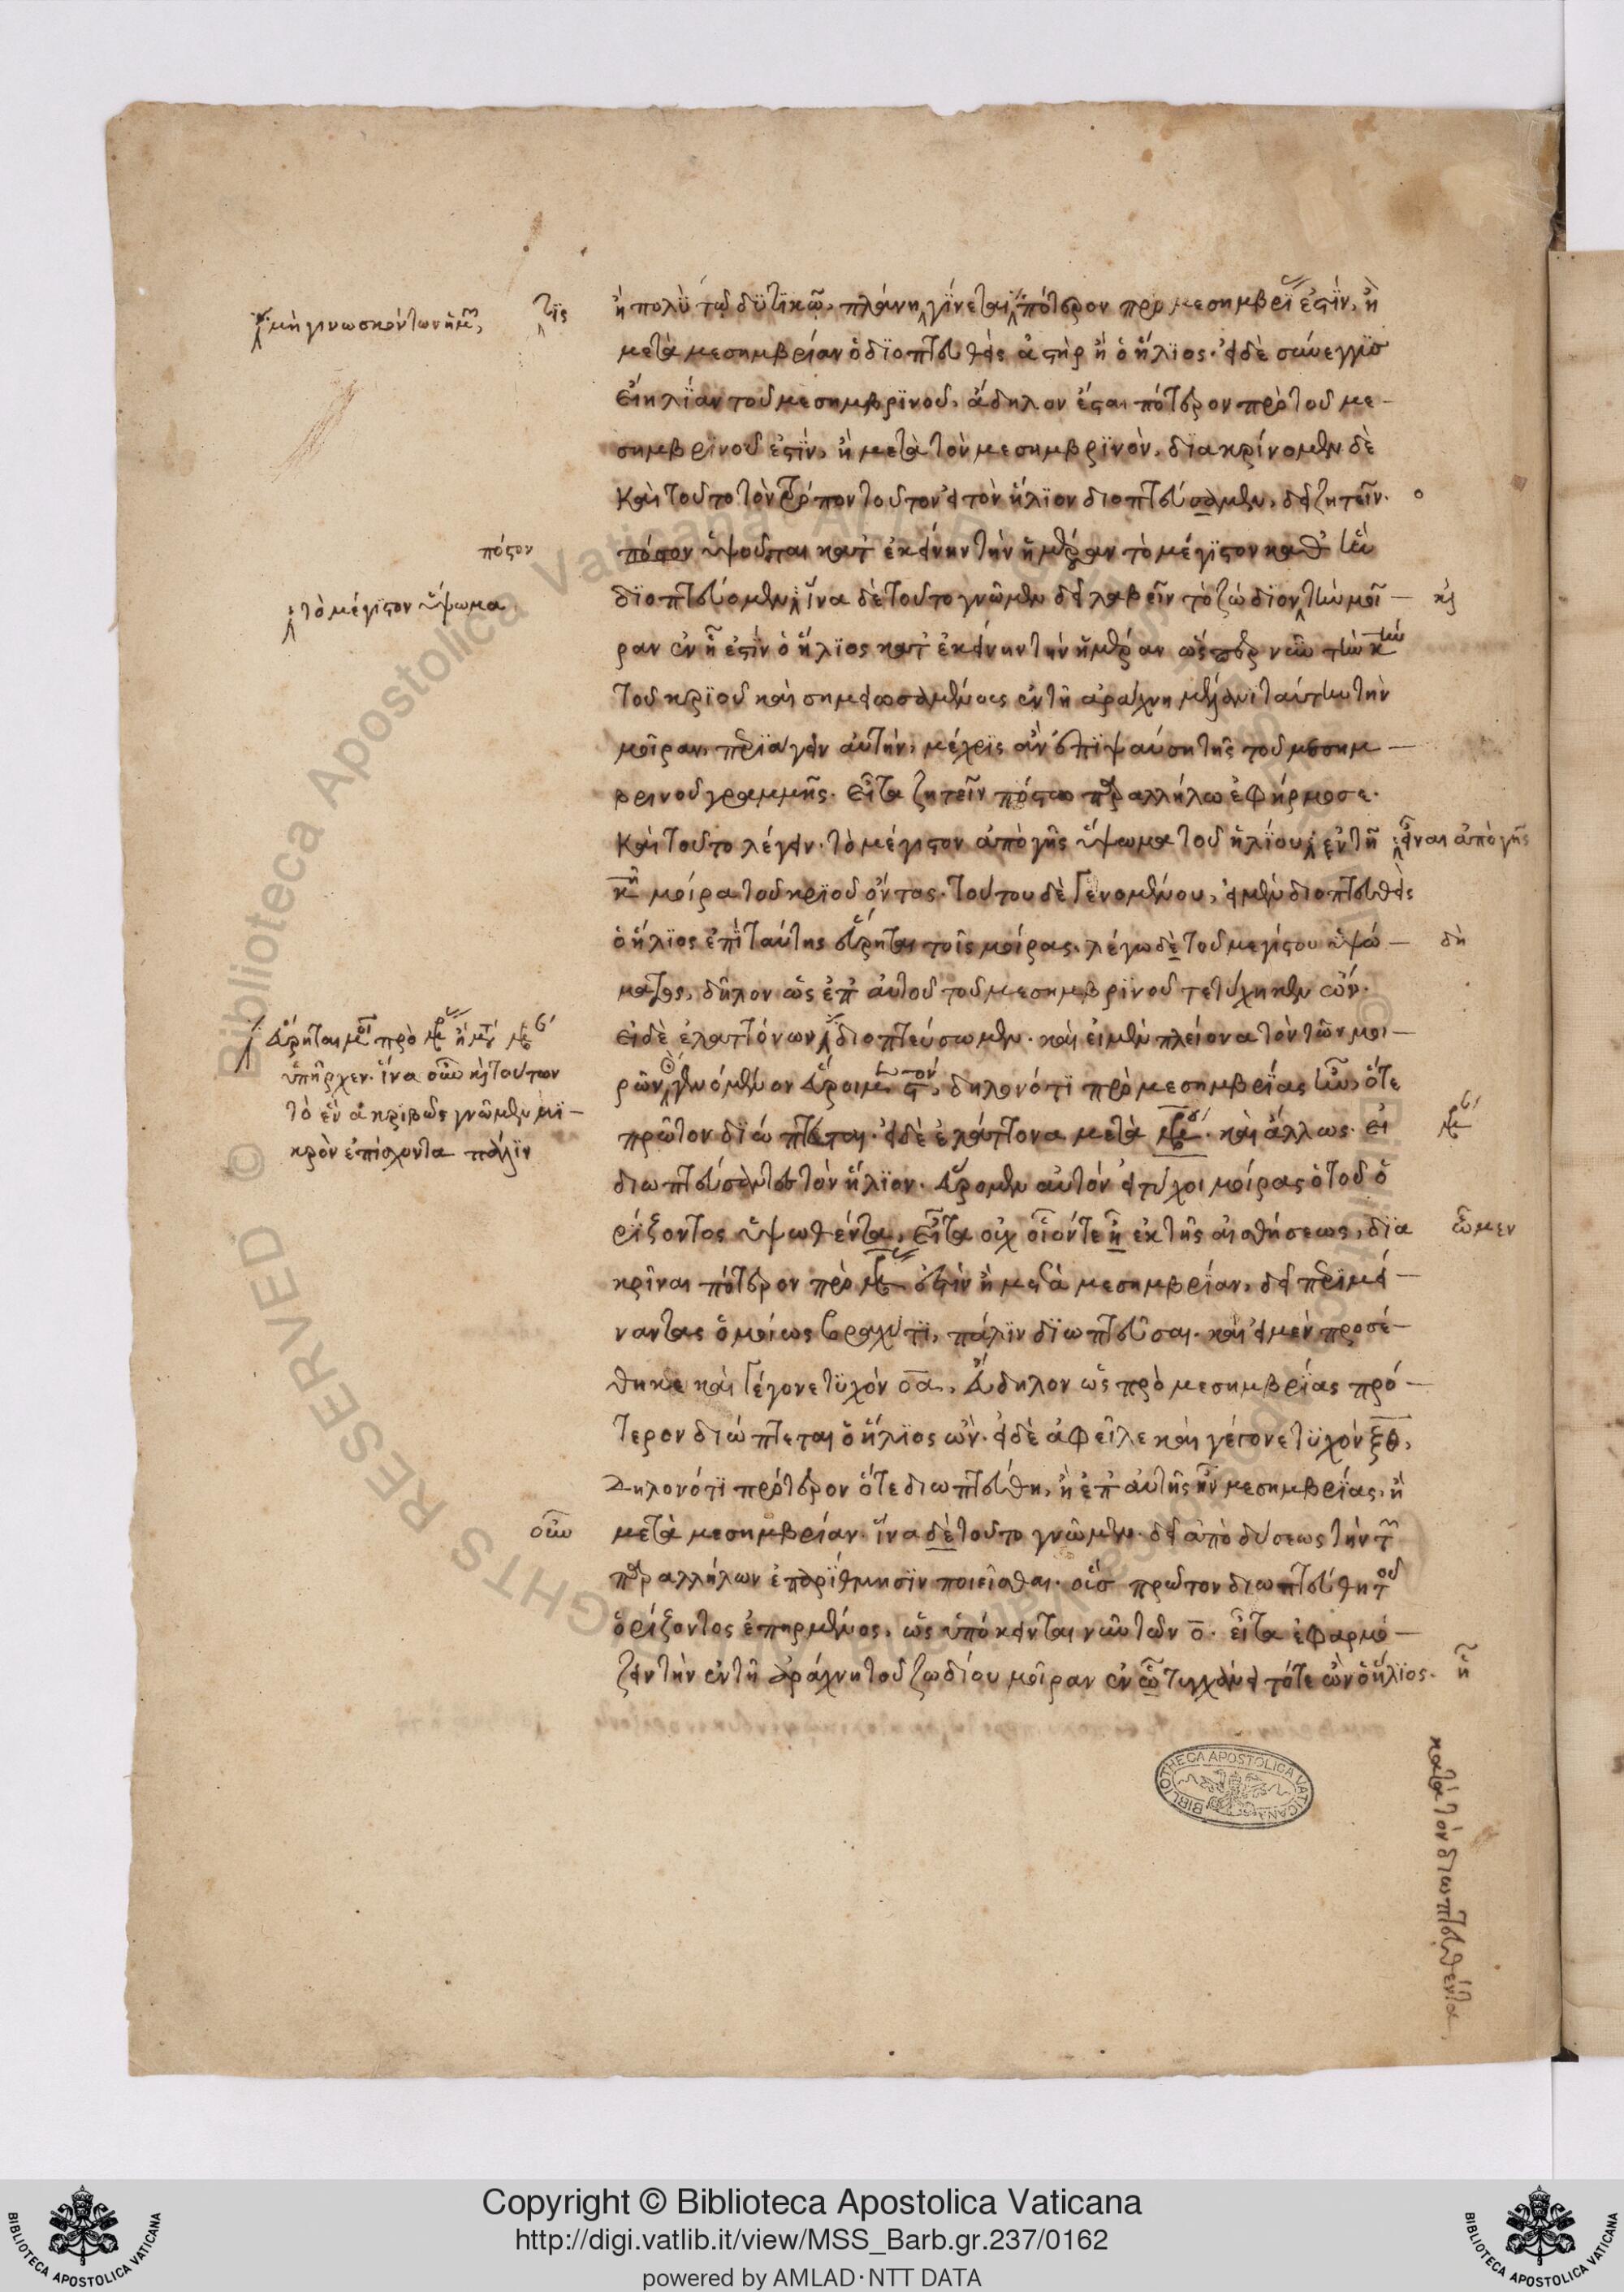 ἢ πολὺ τῷ δυτικῷ, πλάνη γίνεται πότερον πρὸ μεσημβρί ἐστὶν, ἢ
μετὰ μεσημβρίαν ὁ διοπτευθεὶς ἀστὴρ ἢ ὁ ἥλιος. εἰ δὲ σύνεγγυς
εἴη λίαν τοῦ μεσημβρινοῦ, ἄδηλον ἔσται πότερον πρὸ τοῦ με-
σημβρινοῦ ἐστὶν, ἢ μετὰ τὸν μεσημβρινὸν. διακρίνομεν δὲ
καὶ τοῦτο τὸν τρόπον τοῦτον εἰ τὸν ἥλιον διοπτεύσαμεν. δεῖ ζητεῖν.
πόσον ὑψοῦται κατ ἐκείνην τὴν ἡμέραν τὸ μέγιστον καθ ἣν
διοπτεύομεν ἵνα δὲ τοῦτο γνῶμεν δεῖ λαβεῖν τὸ ζώδιον τὴν μοῖ-
ραν ἐν ᾗ ἐστὶν ὁ ἥλιος κατ ἐκείνην τὴν ἡμέραν ὥσπερ νῦν τὴν κ
τοῦ κριοῦ καὶ σημειωσαμένους ἐν τῇ ἀράχνῃ μέλανι ταύτην τὴν
μοῖραν, περιάγειν αὐτὴν, μέχρις ἂν ἐπιψαύσῃ τῆς τοῦ μεσημ-
βρινοῦ γραμμῆς. εἶτα ζητεῖν πόστῳ παραλλήλῳ ἐφήρμοσε.
καὶ τοῦτο λέγειν. τὸ μέγιστον ἀπὸ γῆς ὕψωμα τοῦ ἡλίου ἐν τῇ
κ μοίρᾳ τοῦ κριοῦ ὄντος. τούτου δὲ γενομένου, εἰ μὲν διοπτευθεὶς
ὁ ἥλιος ἐπὶ ταύτης εὕρηται τῆς μοίρας, λέγω δὲ τοῦ μεγίστου ὑψώ-
ματος, δῆλον ὡς ἐπ αὐτοῦ τοῦ μεσημβρινοῦ τετύχηκεν ὤν.
εἰ δὲ ἐλαττόνων διοπτεύσωμεν. καὶ εἰ μὲν πλείονα τὸν τῶν μοι-
ρῶν δηλονότι πρὸ μεσημβρίας ἦν, ὅτε
πρῶτον διώπτευται. εἰ δὲ ἐλάττονα μετὰ καὶ ἄλλως. εἰ
διωπτεύσατε τὸν ἥλιον. εὕρομεν αὐτὸν εἰ τύχοι μοίρας ὁ τοῦ ὁ
ρίζοντος ὑψωθέντα, εἶτα οὐχ οἷόντε ἢ ἐκ τῆς αἰσθήσεως, δια
κρῖναι πότερον πρὸ ἐστὶν ἢ μετὰ μεσημβρίαν, δεῖ περιμεί-
ναντας ὁμοίως βραχύ τι, πάλιν διωπτεῦσαι. καὶ εἰ μὲν προσέ-
θηκε καὶ γέγονε τυχὸν οα, εὔδηλον ὡς πρὸ μεσημβρίας πρό-
τερον διώπτεται ὁ ἥλιος ὤν. εἰ δὲ ἀφεῖλε καὶ γέγονε τυχὸν ξθ,
δηλονότι πρότερον ὅτε διωπτεύθη, ἢ ἐπ αὐτῆς ἦν μεσημβρίας, ἢ
μετὰ μεσημβρίαν. ἵνα δὲ τοῦτο γνῶμεν. δεῖ ἀπὸ δύσεως τὴν τ
παραλλήλων ἐπαρίθμησιν ποιεῖσθαι. οὓς πρῶτον διωπτεύθη τοῦ
ὁρίζοντος ἐπηρμένος, ὡς ὑπόκειται νῦν τῶν ο. εἶτα ἐφαρμό-
ζειν τὴν ἐν τῇ ἀράχνῃ τοῦ ζωδίου μοῖραν ἐν ᾧ τυγχάνει τότε ὢν ὁ ἥλιος.
μὴ γινωσκόντων ἡμ
τῆς
πόστον
τὸ μέγιστον ὕψωμα
εὕρηται πρὸ ἢ
ὑπῆρχεν. ἵνα οὖν κ τούτων
τὸ ἓν ἀκριβῶς γνῶμεν μι-
κρὸν ἐπίσχοντα πάλιν
οὖν
εἶναι ἀπὸ γῆς
δὴ
ὦμεν
κατὰ τὸν διωπτευθέντα
BIBLIOTHECA APOSTOLICA VATICANA
© Biblioteca Apostolica Vaticana ALL RIGHTS RESERVED
Copyright © Biblioteca Apostolica Vaticana
http://digi.vatlib.it/view/MSS_Barb.gr.237/0162
powered by AMLAD·NTT DATA
BIBLIOTECA APOSTOLICA VATICANA
BIBLIOTECA APOSTOLICA VATICANA